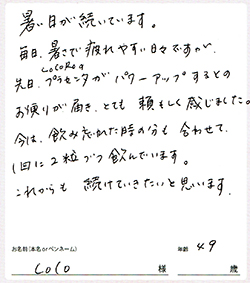 暑い日が続いています。
毎日、暑さで疲れやすい日々ですが、
CoCoRo a
先日、プラセンタが パワーアップするとの
お便りが届き、とても 頼もしく感じました。
今は、飲み忘れた時の分も 合わせて、
1回に2粒づつ飲んでいます。
これからも 続けていきたいと思います。
お名前(本名orペンネーム)
年齢 49
COCO 様 歳